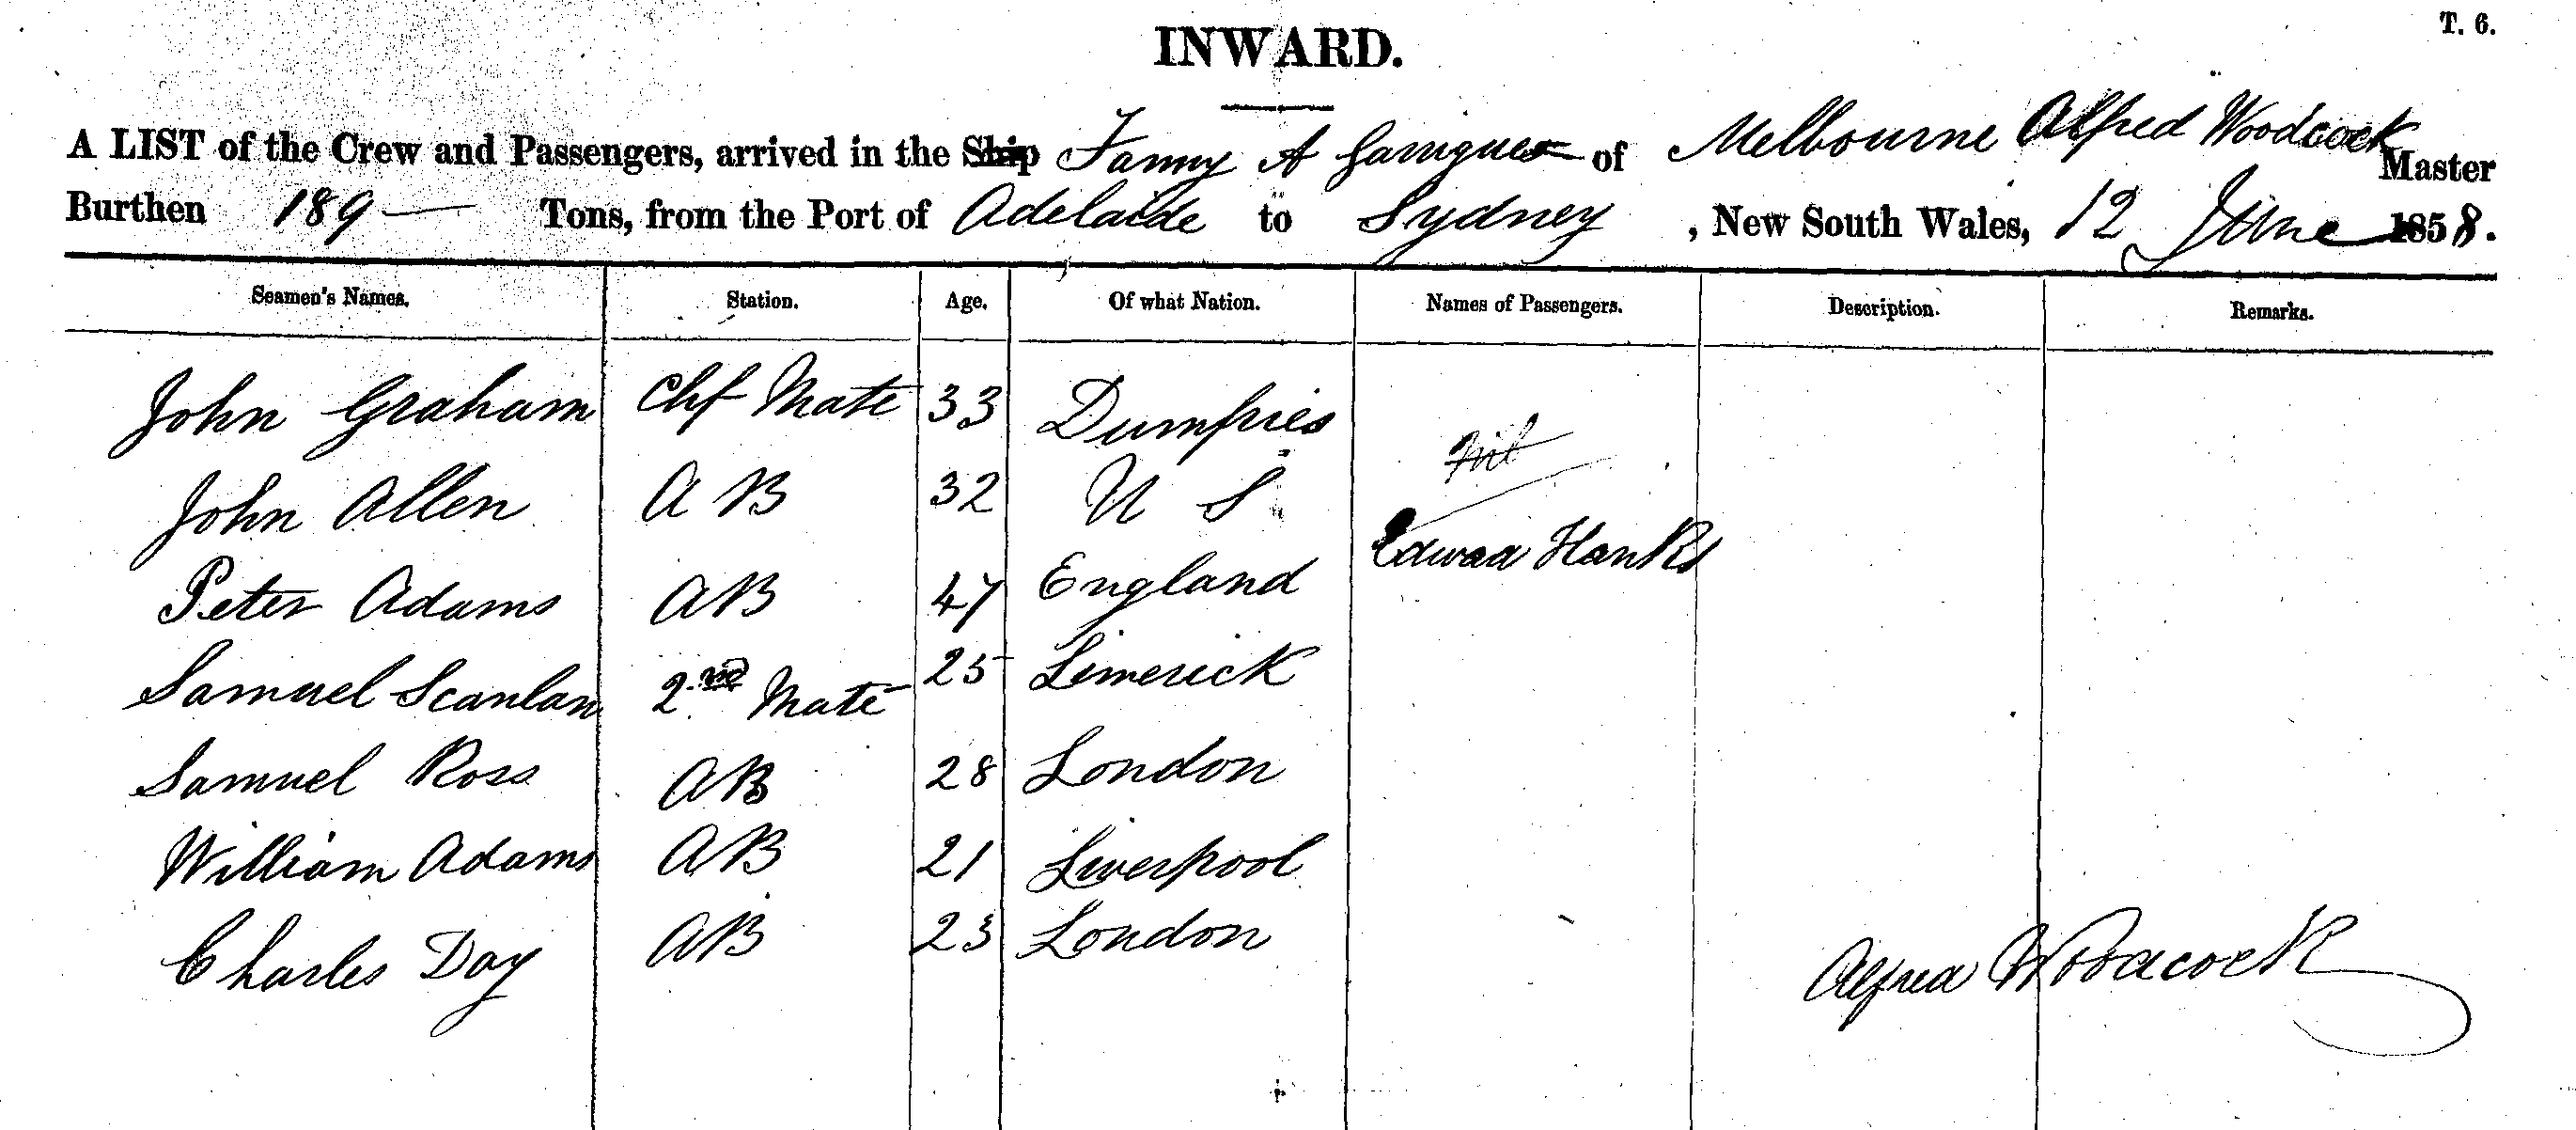 T. 6.
INWARD.
A LIST of the Crew and Passengers, arrived in the Ship Fanny A Garrigues of Melbourne Alfred Woodcock Master
Burthen 189 — Tons, from the Port of Adelaide to Sydney, New South Wales, 12 June 1858.
Seamen's Names. Station. Age. Of what Nation. Names of Passengers. Description. Remarks.
John Graham Chf Mate 33 Dumfries
Nil
John Allen A B 32 U S
Edwad Hanks
Peter Adams AB 47 England
Samuel Scanlan 2nd Mate 25 Limerick
Samuel Ross AB 28 London
William Adams AB 21 Liverpool
Charles Day AB 23 London
Alfred Woodcock